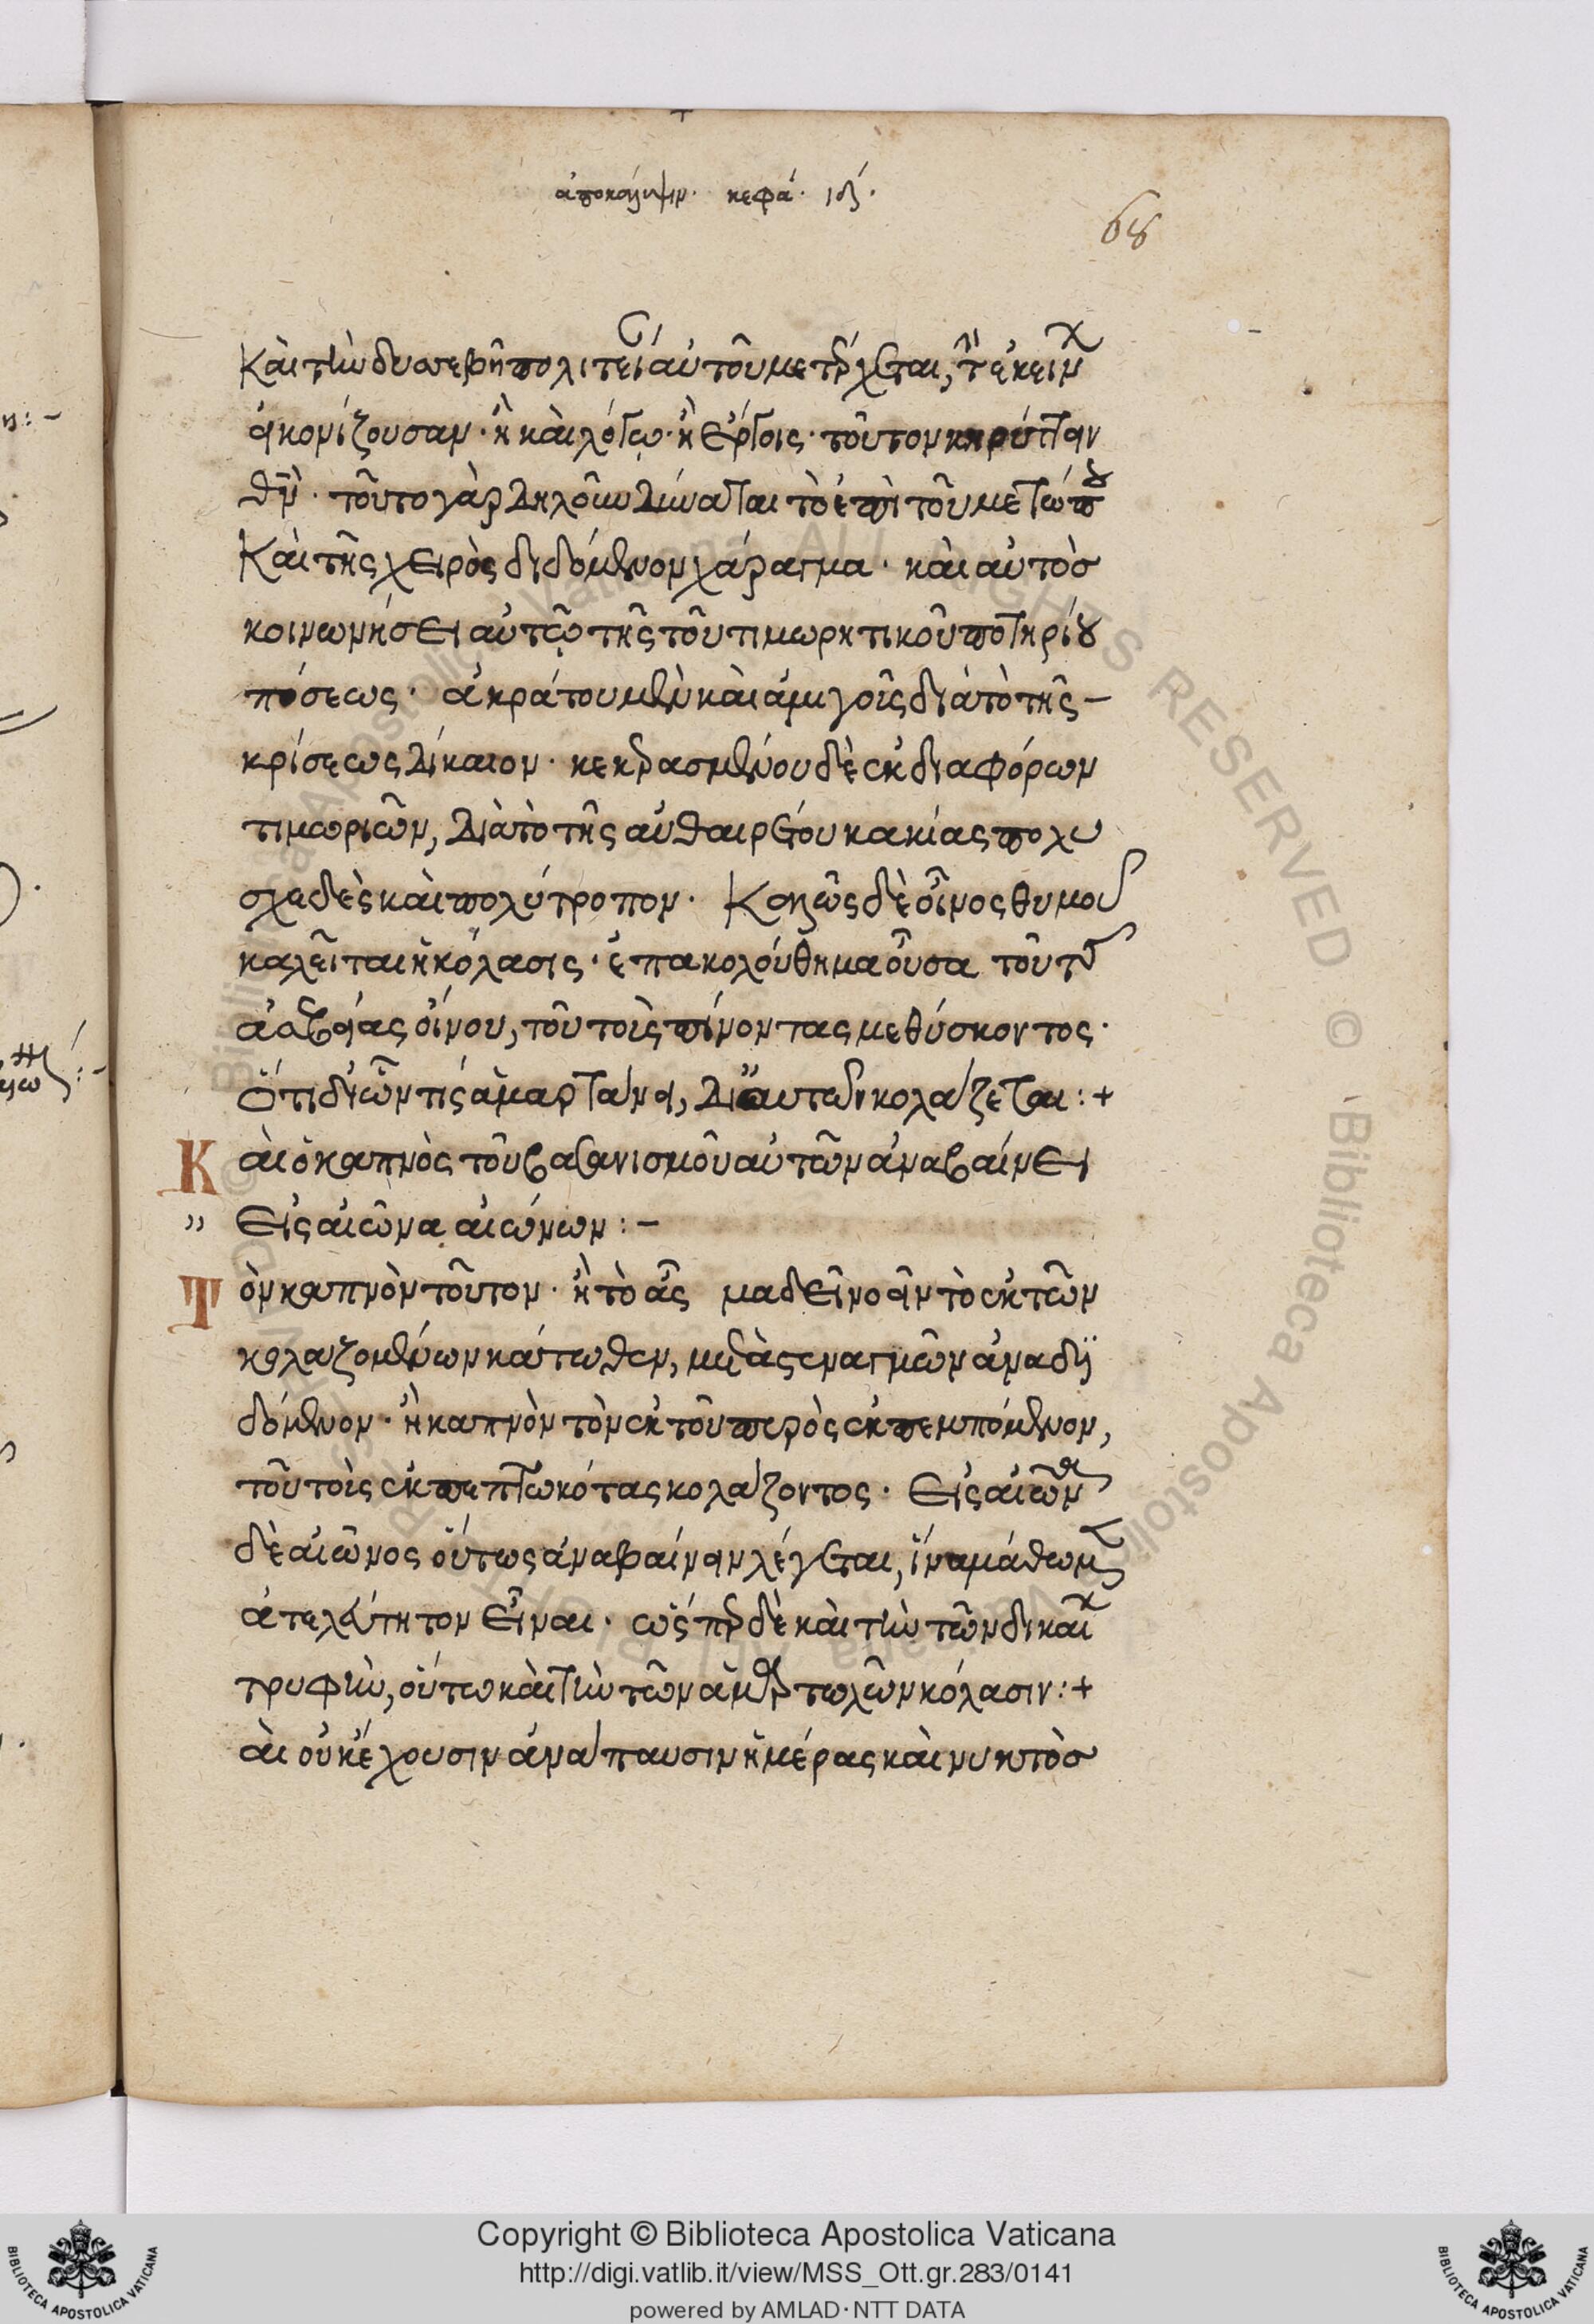 ἀποκάλυψιν. κεφά. ιδ΄.
68
Καὶ τὴν δυσσεβῆ πολιτείαν αὐτοῦ μετέρχεται, τῆς ἐκείνου
εἰκονίζουσαν· ἢ καὶ λόγῳ· ἢ ἔργοις· τοῦτον κηρύττειν
θν̄· τοῦτο γὰρ δηλοῦν δύναται τὸ ἐπὶ τοῦ μετώπου
Καὶ τῆς χειρὸς διδόμενον χάραγμα· καὶ αὐτὸς
κοινωνήσει αὐτῷ τῆς τοῦ τιμωρητικοῦ ποτηρίου
πόσεως· ἀκράτου μὲν καὶ ἀμιγοῦς διὰ τὸ τῆς –
κρίσεως δίκαιον· κεκρασμένου δὲ ἐκ διαφόρων
τιμωριῶν, διὰ τὸ τῆς αὐθαιρέτου κακίας πολυ
σχεδὲς καὶ πολύτροπον· Καλῶς δὲ οἶνος θυμοῦ
καλεῖται ἡ κόλασις· ἐπακολούθημα οὖσα τοῦ τῆς
ἀσεβείας οἴνου, τοῦ τοὺς πίνοντας μεθύσκοντος·
Ὅτι δι' ὧν τις ἁμαρτάνει, δι' αὐτῶν κολάζεται:+
Καὶ ὁ καπνὸς τοῦ βασανισμοῦ αὐτῶν ἀναβαίνει
" Εἰς αἰῶνα αἰώνων:–
Τὸν καπνὸν τοῦτον· ἢ τὸ ἆσμα δεῖ νοεῖν τὸ ἐκ τῶν
κολαζομένων κάτωθεν, μετὰ στεναγμῶν ἀναδι
δόμενον· ἢ καπνὸν τὸν ἐκ τοῦ πυρὸς ἐκπεμπόμενον,
τοῦ τοὺς ἐκπεπτωκότας κολάζοντος· Εἰς αἰῶνα
δὲ αἰῶνος οὕτως ἀναβαίνειν λέγεται, ἵνα μάθωμεν
ἀτελεύτητον εἶναι· ὥσπερ δὲ καὶ τὴν τῶν δικαίων
τρυφὴν, οὕτω καὶ τὴν τῶν ἁμαρτωλῶν κόλασιν:+
αὶ οὐκ ἔχουσιν ἀνάπαυσιν ἡμέρας καὶ νυκτὸς
Copyright © Biblioteca Apostolica Vaticana
http://digi.vatlib.it/view/MSS_Ott.gr.283/0141
powered by AMLAD·NTT DATA